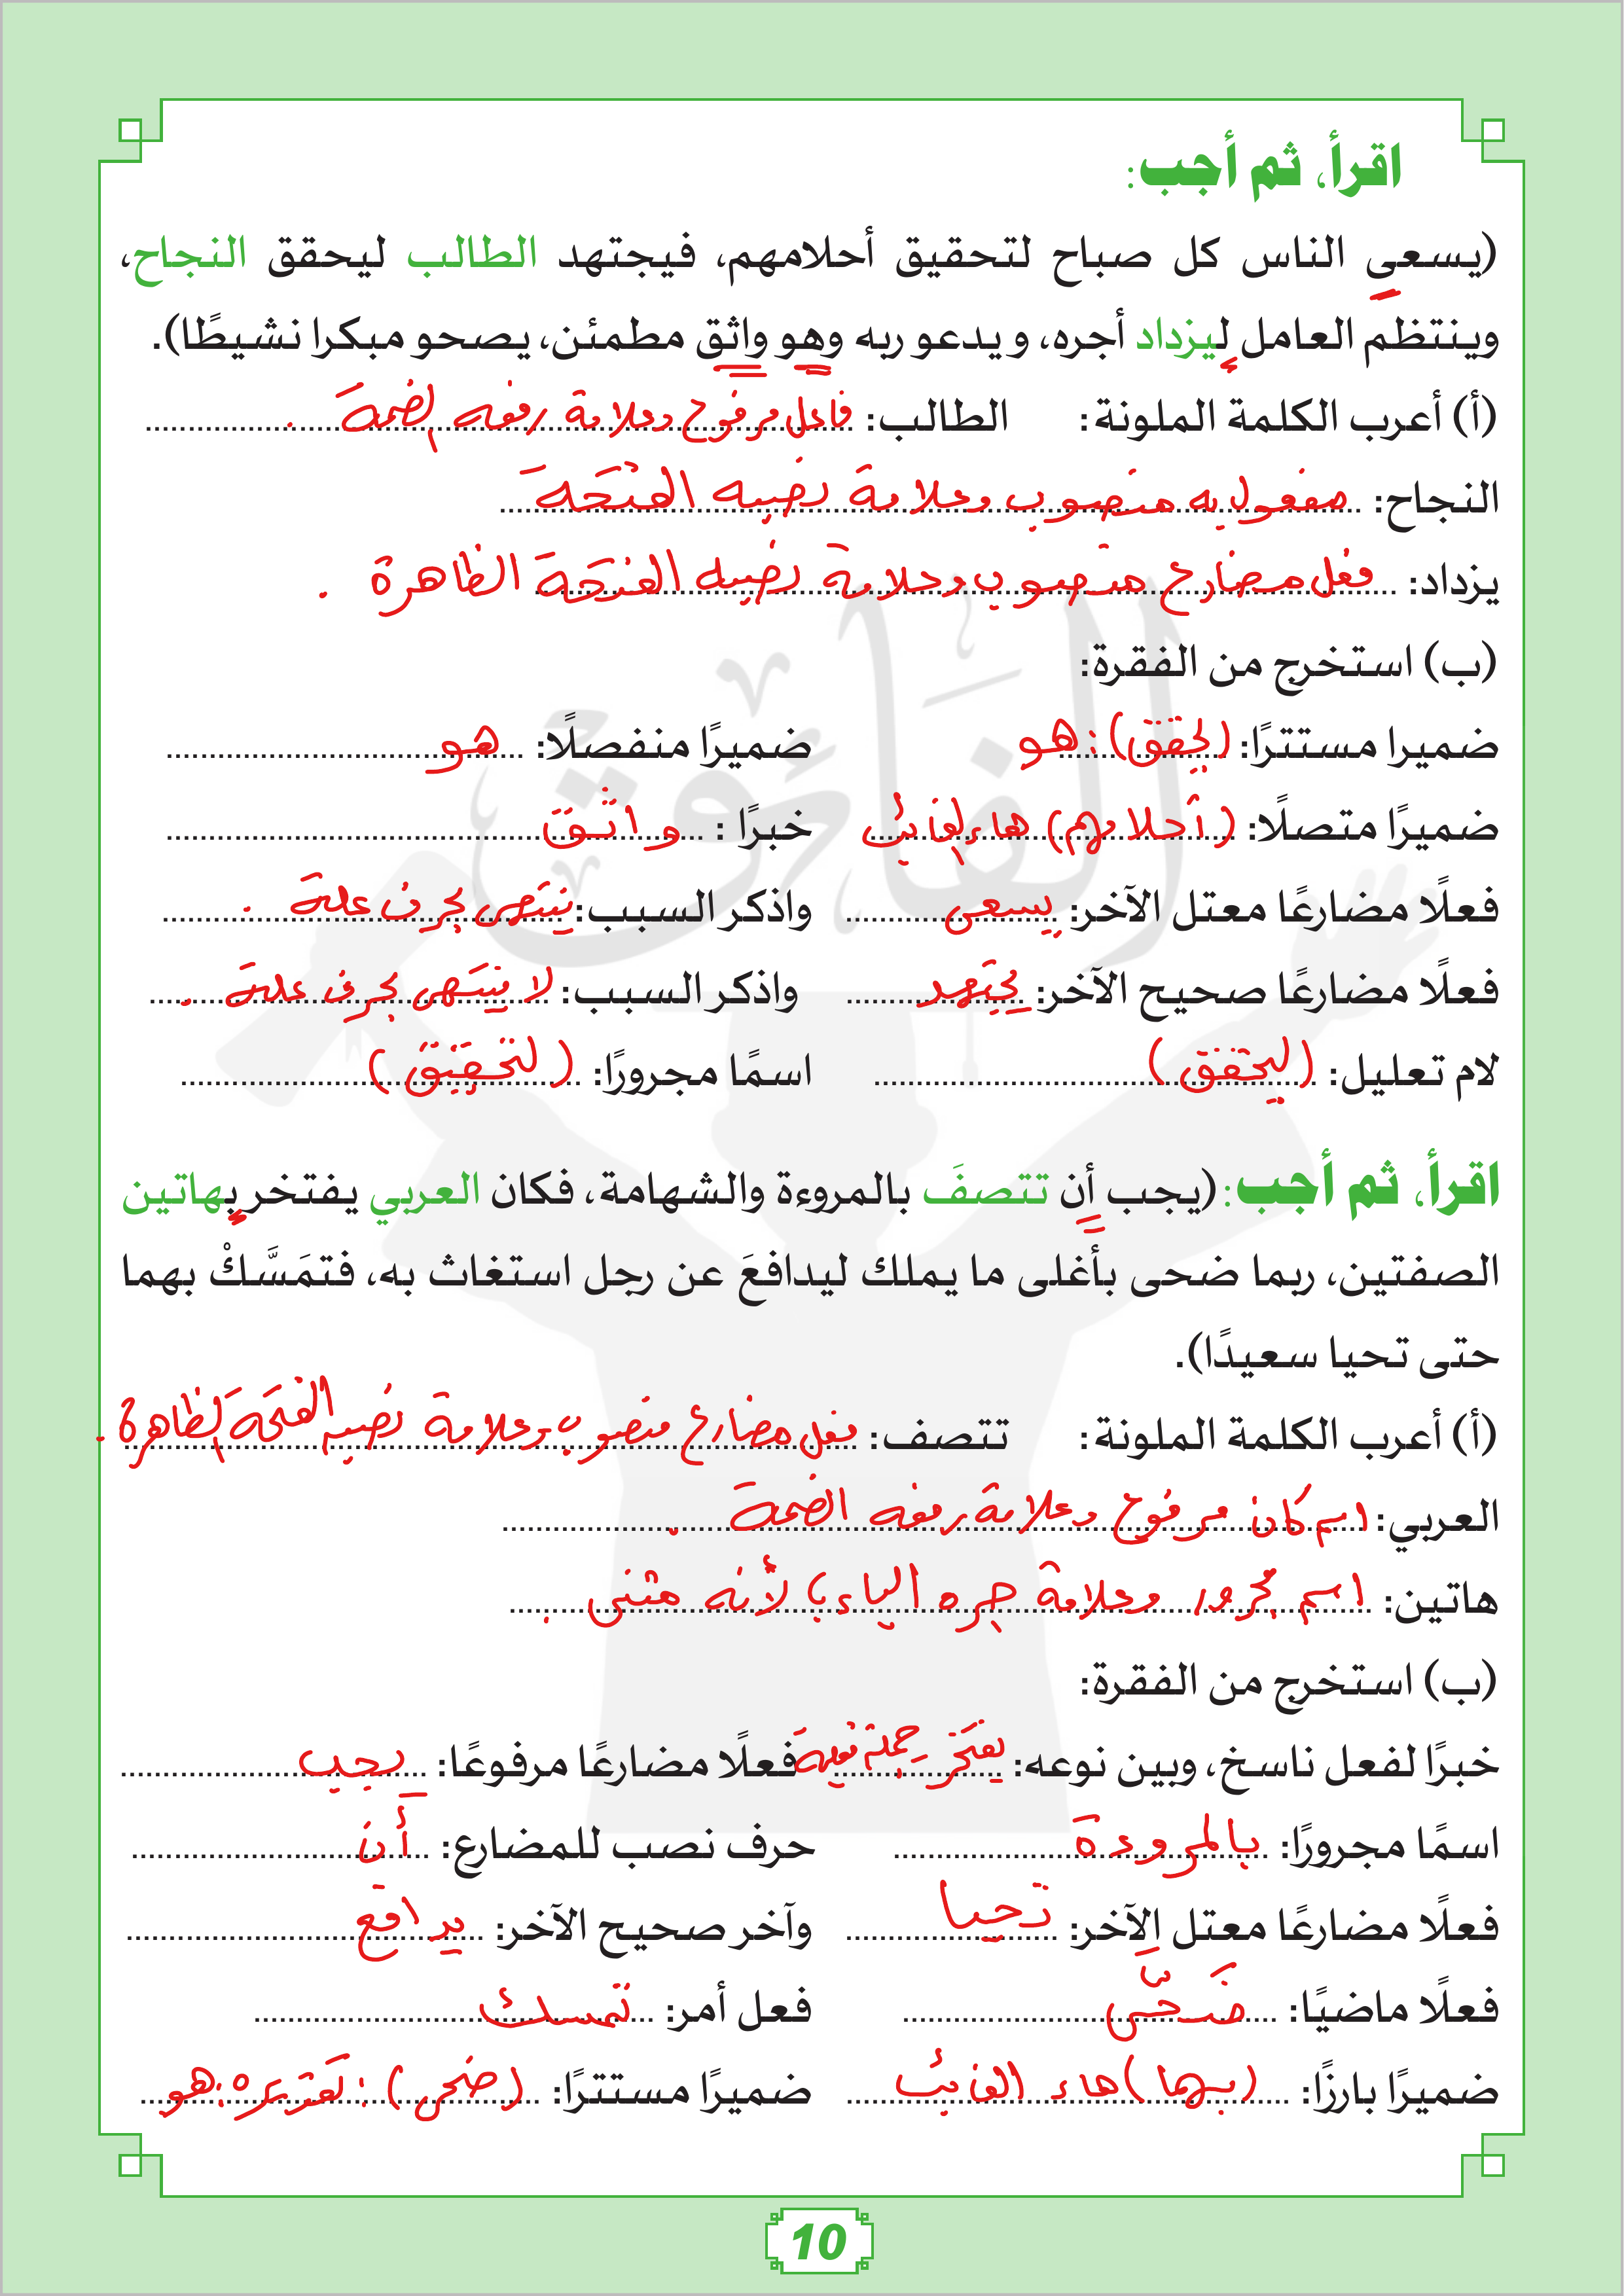 اقرأ، ثم أجب:
(يسعى الناس كل صباح لتحقيق أحلامهم، فيجتهد الطالب ليحقق النجاح،
وينتظم العامل ليزداد أجره، ويدعو ربه وهو واثق مطمئن، يصحو مبكرا نشيطًا).
(أ) أعرب الكلمة الملونة: الطالب: فاعل مرفوع وعلامة رفعه الضمة .
النجاح: مفعول به منصوب وعلامة نصبه الفتحة
يزداد: فعل مضارع منصوب وعلامة نصبه الفتحة الظاهرة .
(ب) استخرج من الفقرة:
ضميرا مستترًا: (يحقق): هو ضميرًا منفصلًا: هو
ضميرًا متصلًا: (أحلامهم) هاء الغائب خبرًا : واثق
فعلًا مضارعًا معتل الآخر: يسعى واذكر السبب: ينتهى بحرف علة .
فعلًا مضارعًا صحيح الآخر: يجتهد واذكر السبب: لا ينتهى بحرف علة .
لام تعليل: (ليحقق) اسمًا مجرورًا: (لتحقيق)
اقرأ، ثم أجب: (يجب أن تتصفَ بالمروءة والشهامة، فكان العربي يفتخر بهاتين
الصفتين، ربما ضحى بأغلى ما يملك ليدافعَ عن رجل استغاث به، فتمَسَّكْ بهما
حتى تحيا سعيدًا).
(أ) أعرب الكلمة الملونة: تتصف: فعل مضارع منصوب وعلامة نصبه الفتحة الظاهرة .
العربي: اسم كان مرفوع وعلامة رفعه الضمة .
هاتين: اسم مجرور وعلامة جره الياء لأنه مثنى .
(ب) استخرج من الفقرة:
خبرًا لفعل ناسخ، وبين نوعه: يفتخر جملة فعلية فعلًا مضارعًا مرفوعًا: يجب
اسمًا مجرورًا: بالمروءة حرف نصب للمضارع: أن
فعلًا مضارعًا معتل الآخر: تحيا وآخر صحيح الآخر: يدافع
فعلًا ماضيًا: ضحَّى فعل أمر: تمسك
ضميرًا بارزًا: (بهما) هاء الغائب ضميرًا مستترًا: (ضحى) : تقديره: هو
10
الفائق